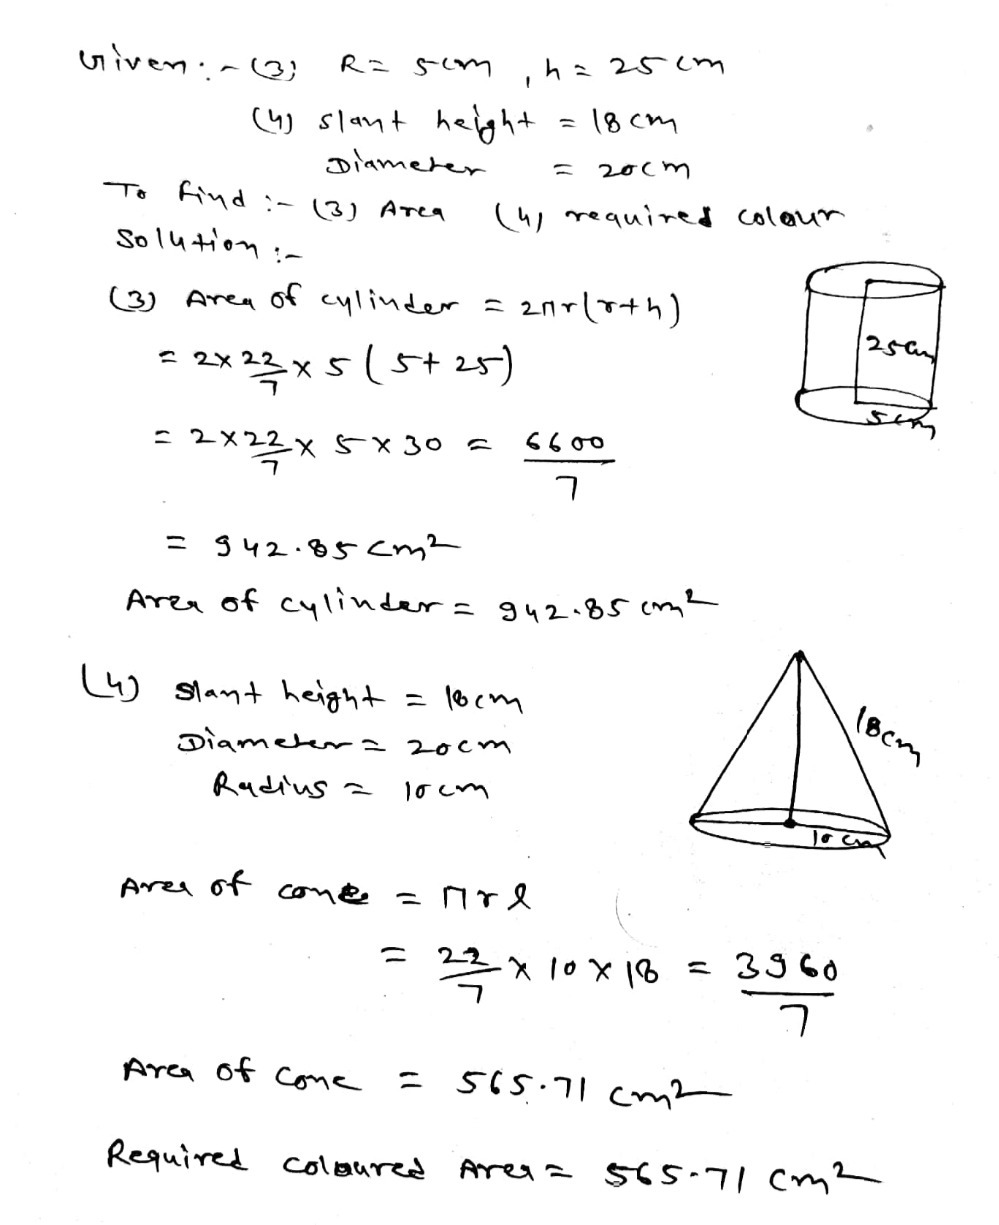 Given :- (3) R = 5cm , h = 25 cm
(4) slant height = 18 cm
Diameter = 20cm
To find :- (3) Area (4) required colour
Solution :-
(3) Area of cylinder = 2πr(r+h)
= 2 × 22/7 × 5 (5 + 25)
25cm
5cm
= 2 × 22/7 × 5 × 30 = 6600/7
= 942.85 cm²
Area of cylinder = 942.85 cm²
(4) slant height = 18cm
Diameter = 20cm
Radius = 10cm
18cm
10 cm
Area of cone = πrl
= 22/7 × 10 × 18 = 3960/7
Area of cone = 565.71 cm²
Required coloured Area = 565.71 cm²